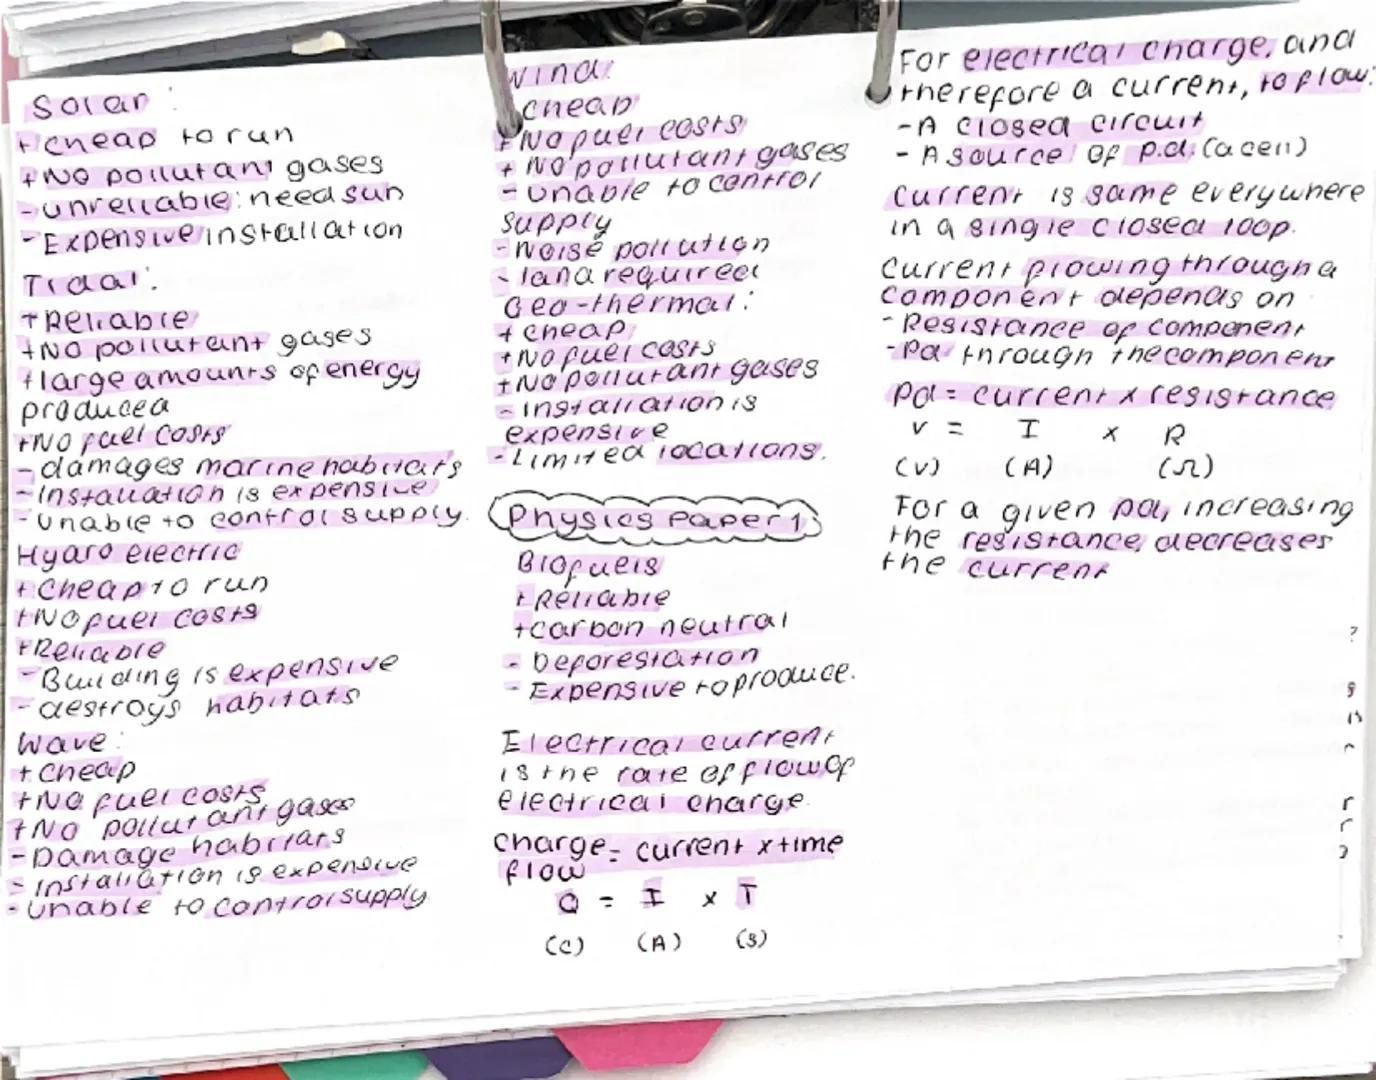 Solar:
+ cheap to run
+ No pollutant gases
- unreliable: need sun
- Expensive installation
Tidal:
+ Reliable
+ No pollutant gases
+ large amounts of energy
produced
+ No fuel costs
- damages marine habitats
- Installation is expensive
- Unable to control supply.
Hydro electric
+ Cheap to run
+ No fuel costs
+ Reliable
- Building is expensive
- destroys habitats
Wave:
+ Cheap
+ No fuel costs
+ No pollutant gases
- Damage habitats
- Installation is expensive
- Unable to control supply
Wind:
cheap
+ No fuel costs
+ No pollutant gases
- Unable to control
supply
- Noise pollution
- land required
Geo-thermal:
+ cheap
+ No fuel costs
+ No pollutant gases
- Installation is
expensive
- Limited locations.
Physics Paper 1
Biofuels
+ Reliable
+ carbon neutral
- Deforestation
- Expensive to produce.
Electrical current
is the rate of flow of
electrical charge.
charge = current x time
flow
Q = I x T
(C) (A) (s)
For electrical charge, and
therefore a current, to flow:
- A closed circuit
- A source of p.d. (a cell)
Current is same everywhere
in a single closed loop.
Current flowing through a
component depends on
- Resistance of component
- Pd through the component
Pd = current x resistance
V = I x R
(V) (A) (Ω)
For a given pd, increasing
the resistance, decreases
the current